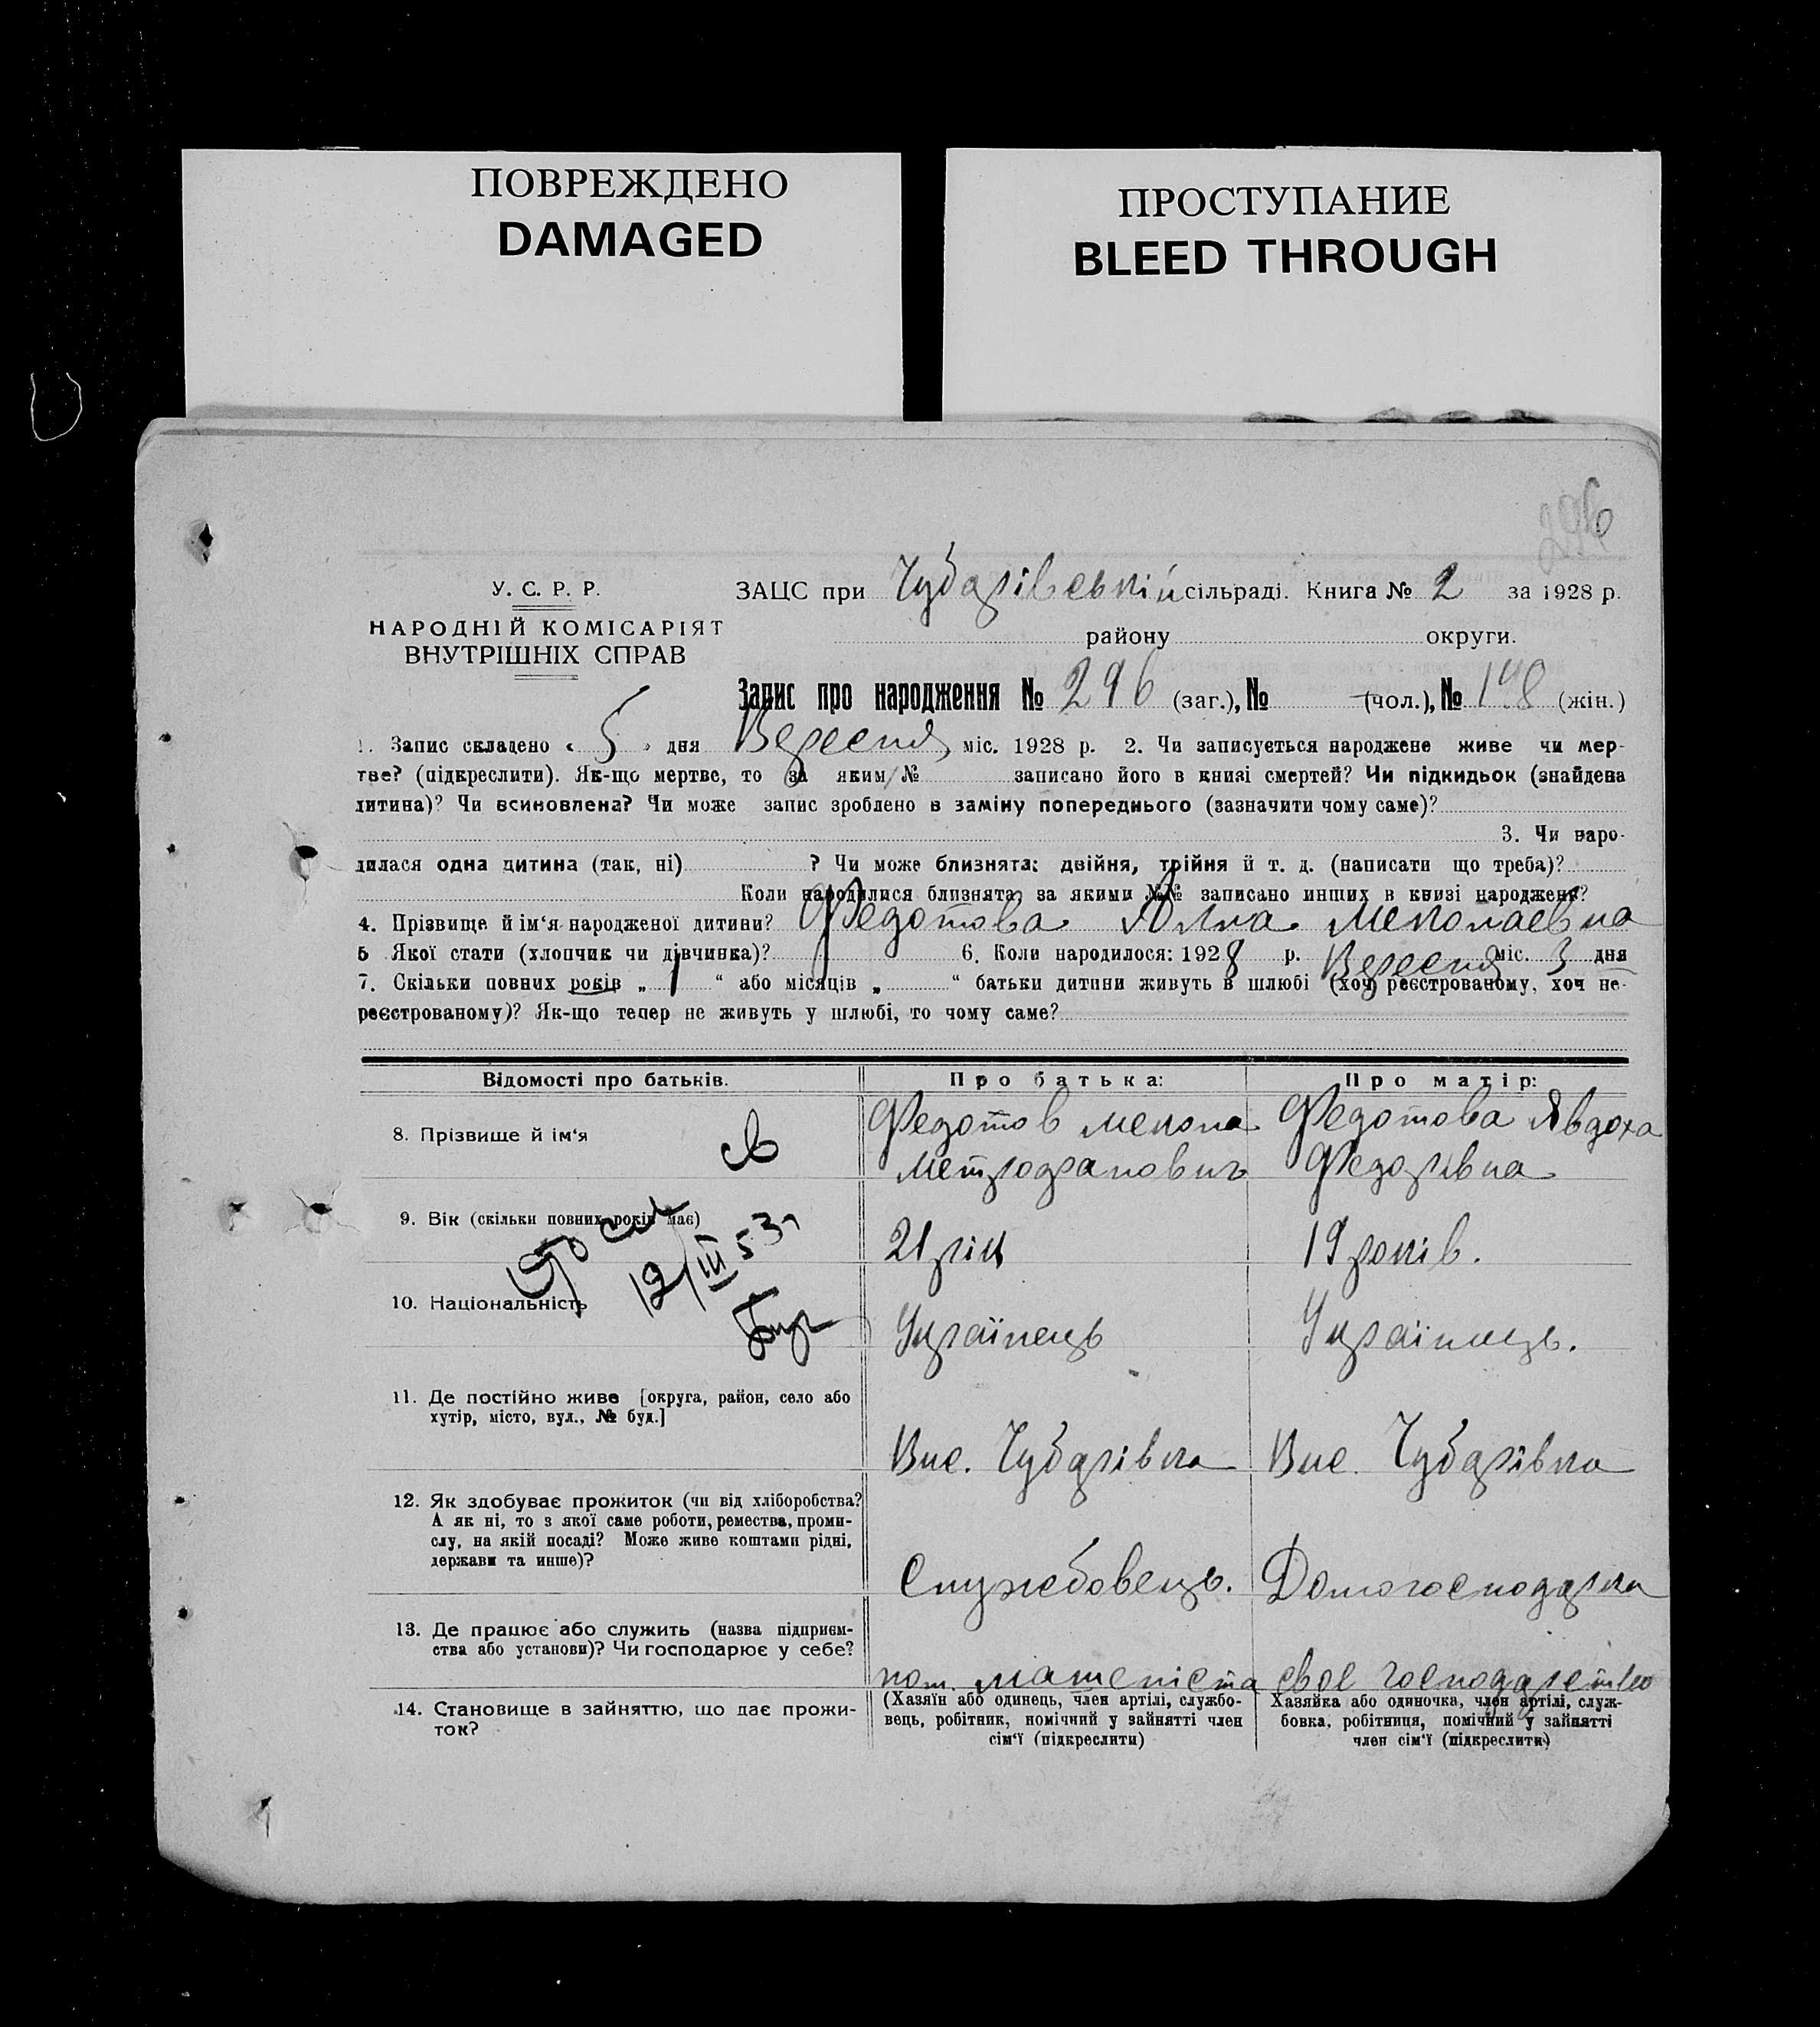 ПОВРЕЖДЕНО
DAMAGED
ПРОСТУПАНИЕ
BLEED THROUGH
296
У. С. Р. Р.
НАРОДНІЙ КОМІСАРІЯТ
ВНУТРІШНІХ СПРАВ
ЗАЦС при Чубарівській сільраді. Книга № 2 за 1928 р.
району округи.
Запис про народження № 296 (заг.), № (чол.), № 148 (жін.)
1. Запис складено « 5 » дня Вересня міс. 1928 р. 2. Чи записується народжене живе чи мер-
тве? (підкреслити). Як-що мертве, то за яким № записано його в книзі смертей? Чи підкидьок (знайдена
дитина)? Чи всиновлена? Чи може запис зроблено в заміну попереднього (зазначити чому саме)?
3. Чи наро-
дилася одна дитина (так, ні) ? Чи може близнята: двійня, трійня й т. д. (написати що треба)?
Коли народилися близнята, за якими №№ записано инших в книзі народжень?
4. Прізвище й ім‘я народженої дитини? Федотова
5 Якої стати (хлопчик чи дівчинка)? 6. Коли народилося: 1928 р. Вересня міс. 3 дня
7. Скільки повних років „ 1 “ або місяців „ “ батьки дитини живуть в шлюбі (хоч реєстрованому, хоч не-
реєстрованому)? Як-що тепер не живуть у шлюбі, то чому саме?
Відомості про батьків. Про батька: Про матір:
8. Прізвище й ім‘я
Федотов Федотова Явдоха
Федорівна
9. Вік (скільки повних років має)
21 рік 19 років.
12/III 53
10. Національність
Українець Українець.
11. Де постійно живе [округа, район, село або
хутір, місто, вул., № буд.]
Вис. Чубарівка Вис. Чубарівка
12. Як здобуває прожиток (чи від хліборобства?
А як ні, то з якої саме роботи, ремества, проми-
слу, на якій посаді? Може живе коштами рідні,
держави та инше)?
Службовець. Домогосподарка
13. Де працює або служить (назва підприєм-
ства або установи)? Чи господарює у себе?
пом. машеніста своє господарство
14. Становище в зайняттю, що дає прожи-
ток?
(Хазяїн або одинець, член артілі, службо-
вець, робітник, помічний у зайнятті член
сім‘ї (підкреслити)
Хазяйка або одиночка, член артілі, служ-
бовка, робітниця, помічний у зайнятті
член сім‘ї (підкреслити)